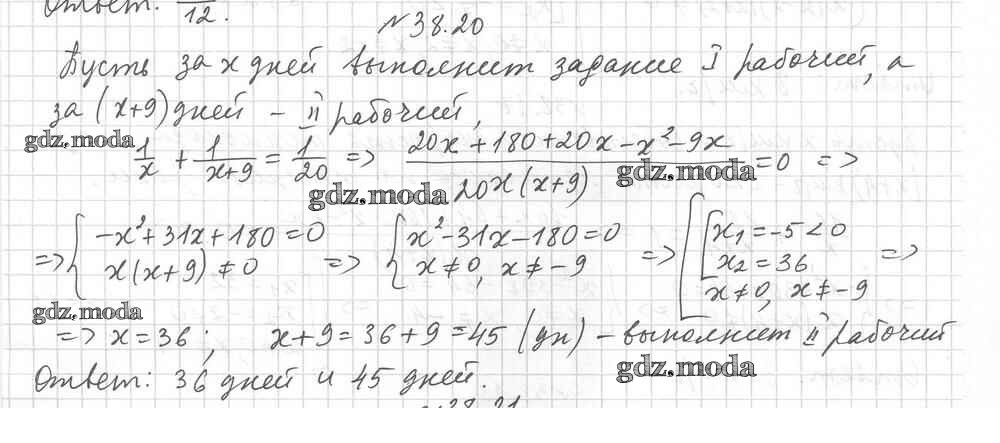 Ответ: 12.
№38.20
Пусть за x дней выполнит задание I рабочий, а
за (x+9) дней – II рабочий,
gdz.moda
1/x + 1/(x+9) = 1/20 => (20x+180+20x–x²–9x)/(20x(x+9)) = 0 =>
gdz.moda gdz.moda
=> { –x²+31x+180=0 => { x²–31x–180=0 => { [ x₁=–5<0 =>
x(x+9)≠0 x≠0, x≠–9 x₂=36
x≠0, x≠–9
gdz.moda
=> x=36; x+9=36+9=45 (дн) – выполнит II рабочий
Ответ: 36 дней и 45 дней.
gdz.moda